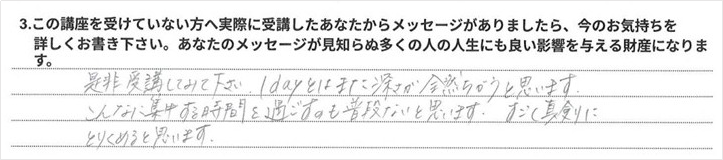 3.この講座を受けていない方へ実際に受講したあなたからメッセージがありましたら、今のお気持ちを
詳しくお書き下さい。あなたのメッセージが見知らぬ多くの人の人生にも良い影響を与える財産になりま
す。
是非受講してみて下さい。1dayとはまた深さが全然ちがうと思います。
こんなに集中する時間を過ごすのも普段ないと思います。すごく真剣に
とりくめると思います。